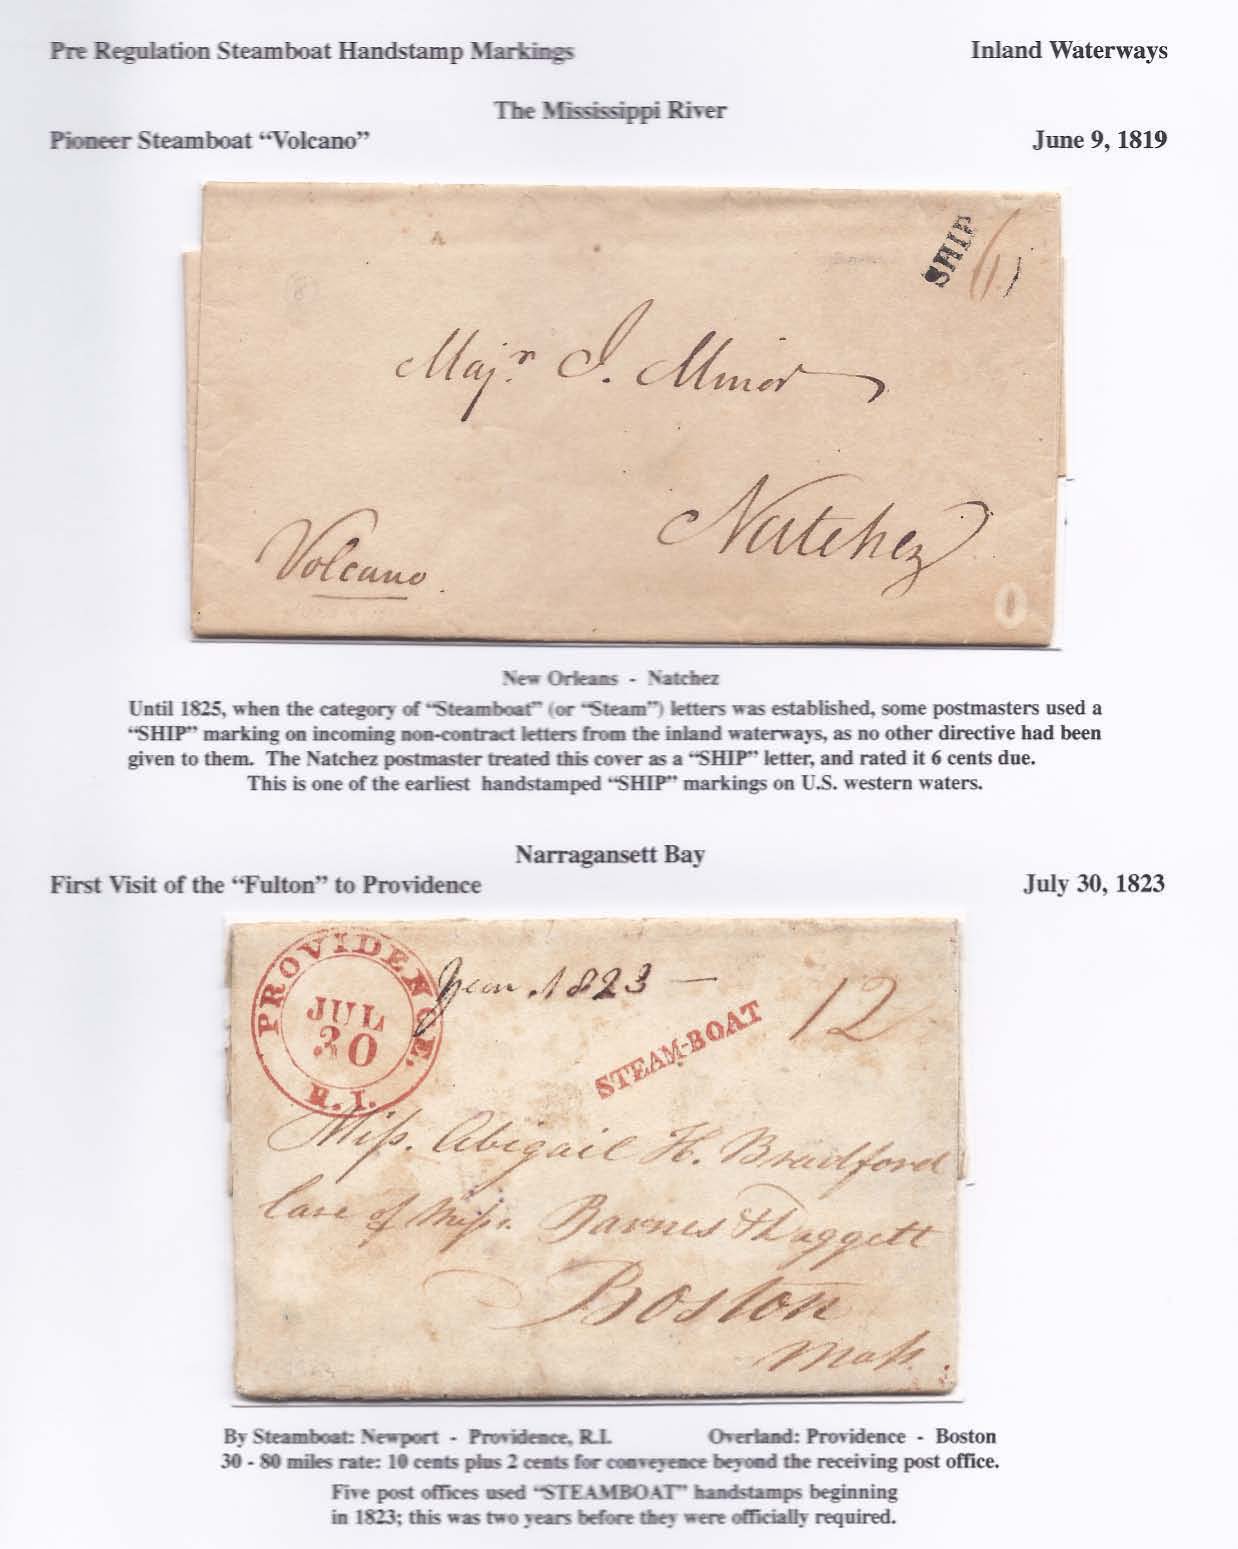 Pre Regulation Steamboat Handstamp Markings Inland Waterways
The Mississippi River
Pioneer Steamboat “Volcano” June 9, 1819
SHIP 6
Majr. I. Minor
Natchez
Volcano
New Orleans - Natchez
Until 1825, when the category of “Steamboat” (or “Steam”) letters was established, some postmasters used a
“SHIP” marking on incoming non-contract letters from the inland waterways, as no other directive had been
given to them. The Natchez postmaster treated this cover as a “SHIP” letter, and rated it 6 cents due.
This is one of the earliest handstamped “SHIP” markings on U.S. western waters.
Narragansett Bay
First Visit of the “Fulton” to Providence July 30, 1823
PROVIDENCE. R.I.
JUL
30
Year 1823 —
STEAM-BOAT
12
Miss. Abigail H. Bradford
Care of Messr. Barnes & Daggett
Boston
Mass.
By Steamboat: Newport - Providence, R.I. Overland: Providence - Boston
30 - 80 miles rate: 10 cents plus 2 cents for conveyence beyond the receiving post office.
Five post offices used “STEAMBOAT” handstamps beginning
in 1823; this was two years before they were officially required.